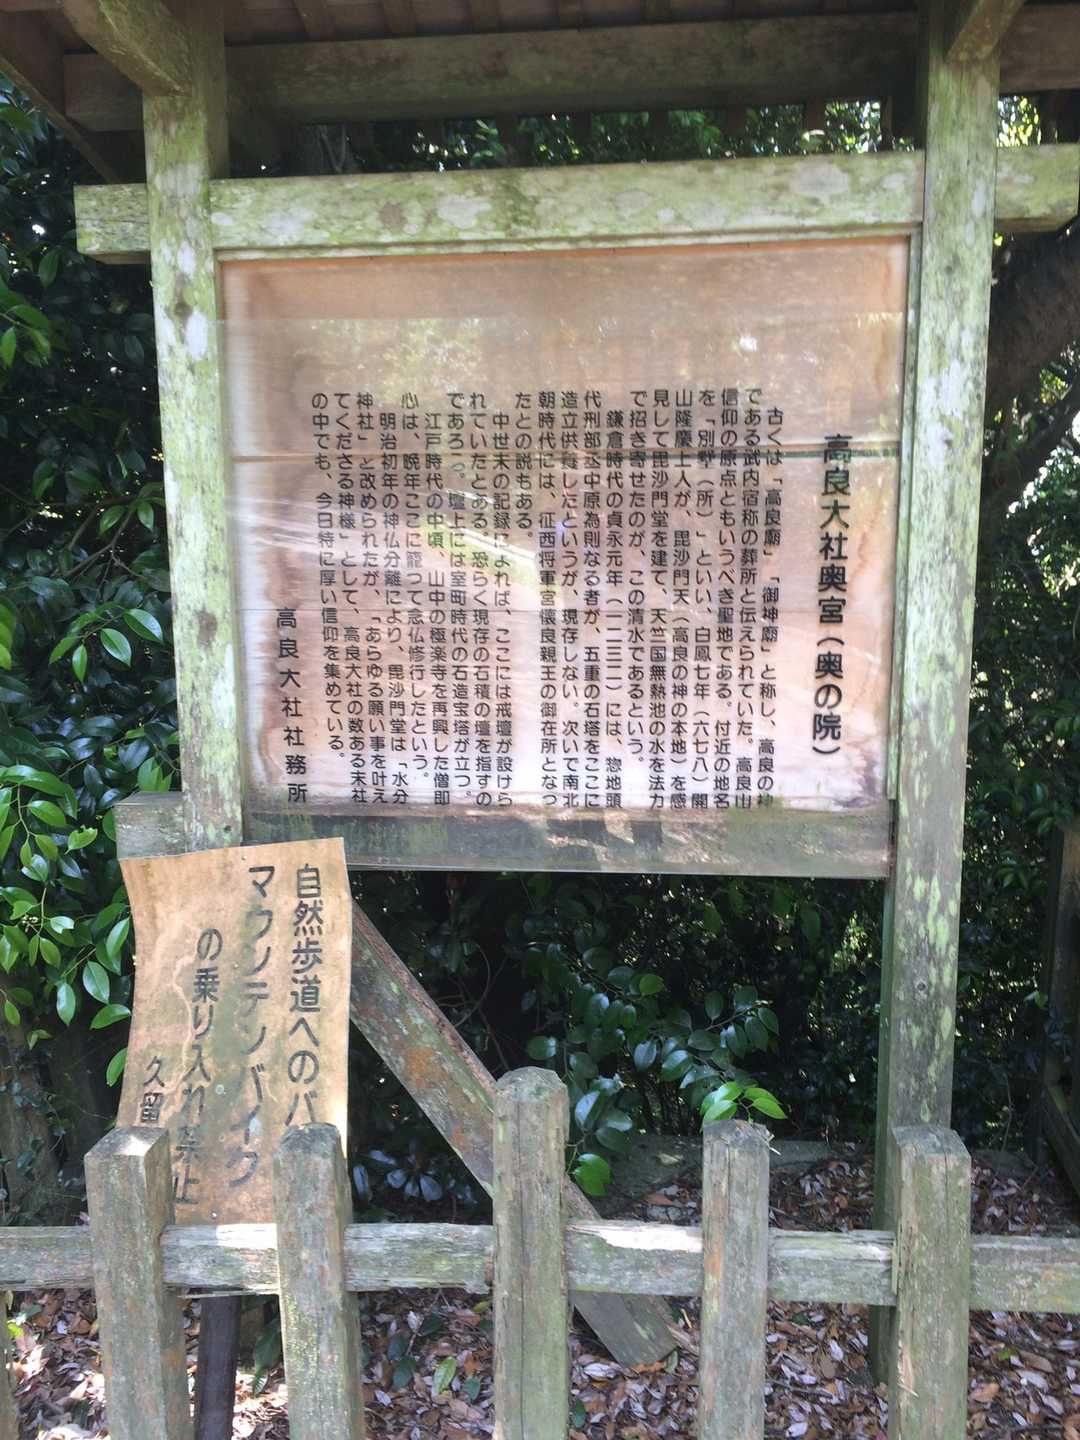 高良大社奥宮(奥の院)
古くは「高良廟」「御神廟」と称し、高良の神
である武内宿称の葬所と伝えられていた。高良山
信仰の原点ともいうべき聖地である。付近の地名
を「別墅(所)」といい、白鳳七年(六七八)開
山隆慶上人が、毘沙門天(高良の神の本地)を感
見して毘沙門堂を建て、天竺国無熱池の水を法力
で招き寄せたのが、この清水であるという。
鎌倉時代の貞永元年(一二三二)には、惣地頭
代刑部丞中原為則なる者が、五重の石塔をここに
造立供養したというが、現存しない。次いで南北
朝時代には、征西将軍宮懐良親王の御在所となっ
たとの説もある。
中世末の記録によれば、ここには戒壇が設けら
れていたとある。恐らく現存の石積の壇を指すの
であろう。壇上には室町時代の石造宝塔が立つ。
江戸時代の中頃、山中の極楽寺を再興した僧即
心は、晩年ここに籠って念仏修行したという。
明治初年の神仏分離により、毘沙門堂は「水分
神社」と改められたが、「あらゆる願い事を叶え
てくださる神様」として、高良大社の数ある末社
の中でも、今日特に厚い信仰を集めている。
高良大社社務所
自然歩道へのバ
マウンテンバイク
の乗り入れ禁止
久留